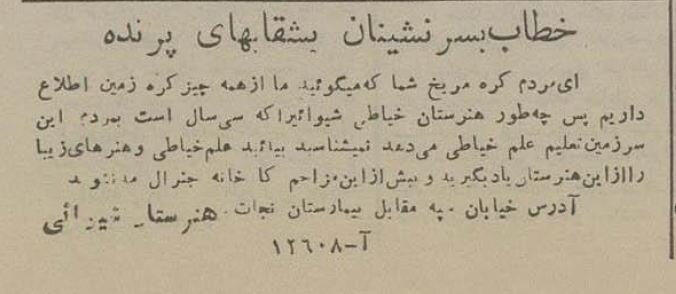 خطاب بسر نشینان بشقابهای پرنده
ای مردم کره مریخ شما که میگوئید ما از همه چیز کره زمین اطلاع
داریم پس چه‌طور هنرستان خیاطی شیوائی را که سی سال است بمردم این
سرزمین تعلیم علم خیاطی می‌دهد نمیشناسید بیائید علم خیاطی و هنرهای زیبا
را از این هنرستان یاد بگیرید و بیش از این مزاحم کاخانه جنرال
آدرس خیابان سپه مقابل بیمارستان نجات. هنرستان
آ-۱۲۶۰۸